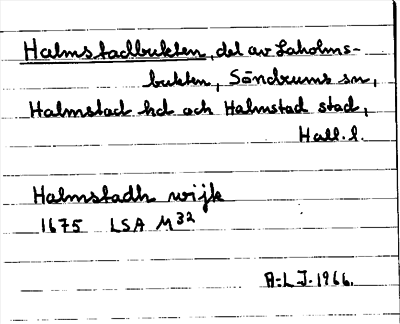 Halmstadbukten, del av Laholms-
bukten, Söndrums sn,
Halmstad hd och Halmstad stad,
Hall. l.
Halmstadh wijk
1675 LSA M32
A-L J. 1966.